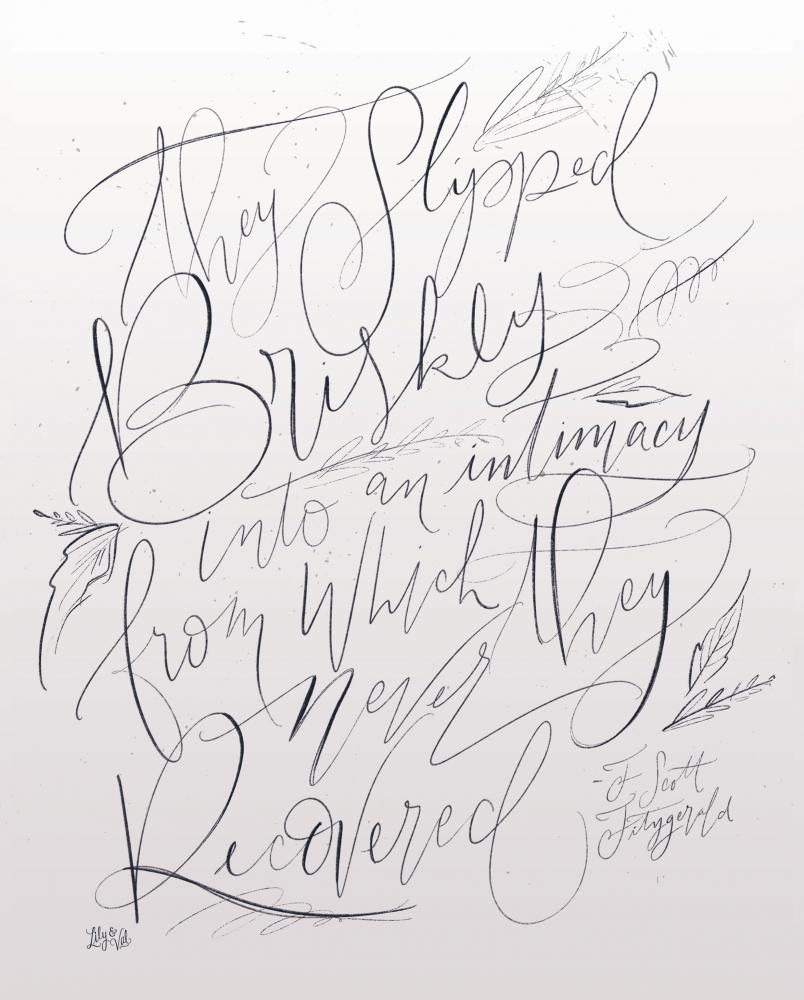 They Slipped
Briskly
into an intimacy
from which they
never
Recovered
- F. Scott
Fitzgerald
Lily & Val